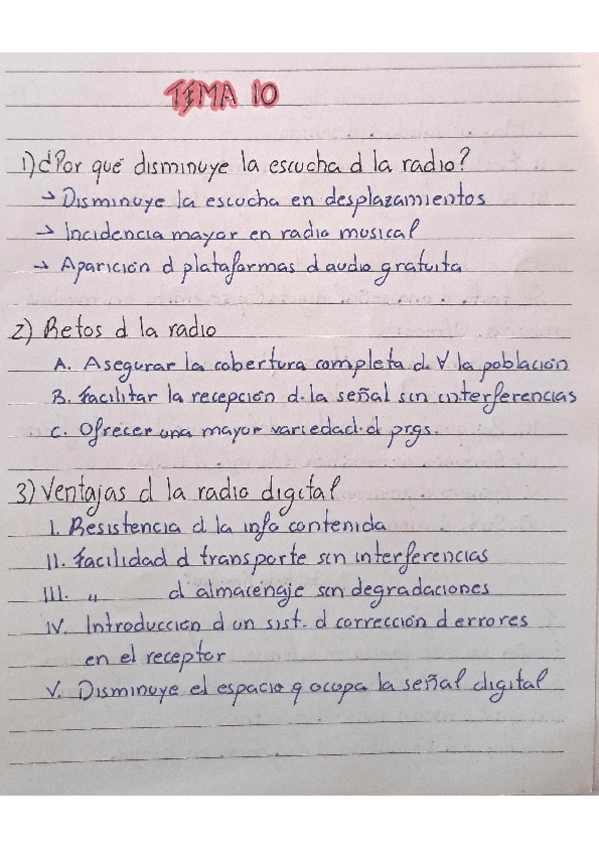 TEMA 10
1) ¿Por qué disminuye la escucha d la radio?
→ Disminuye la escucha en desplazamientos
→ Incidencia mayor en radio musical
→ Aparición d plataformas d audio gratuita
2) Retos d la radio
A. Asegurar la cobertura completa d. ∀ la población
B. Facilitar la recepción d. la señal sin interferencias
C. Ofrecer una mayor variedad. d prgs.
3) Ventajas d la radio digital
I. Resistencia d la info contenida
II. Facilidad d transporte sin interferencias
III. " d almacenaje sin degradaciones
IV. Introducción d un sist. d corrección d errores
en el receptor
V. Disminuye el espacio q ocupa la señal digital